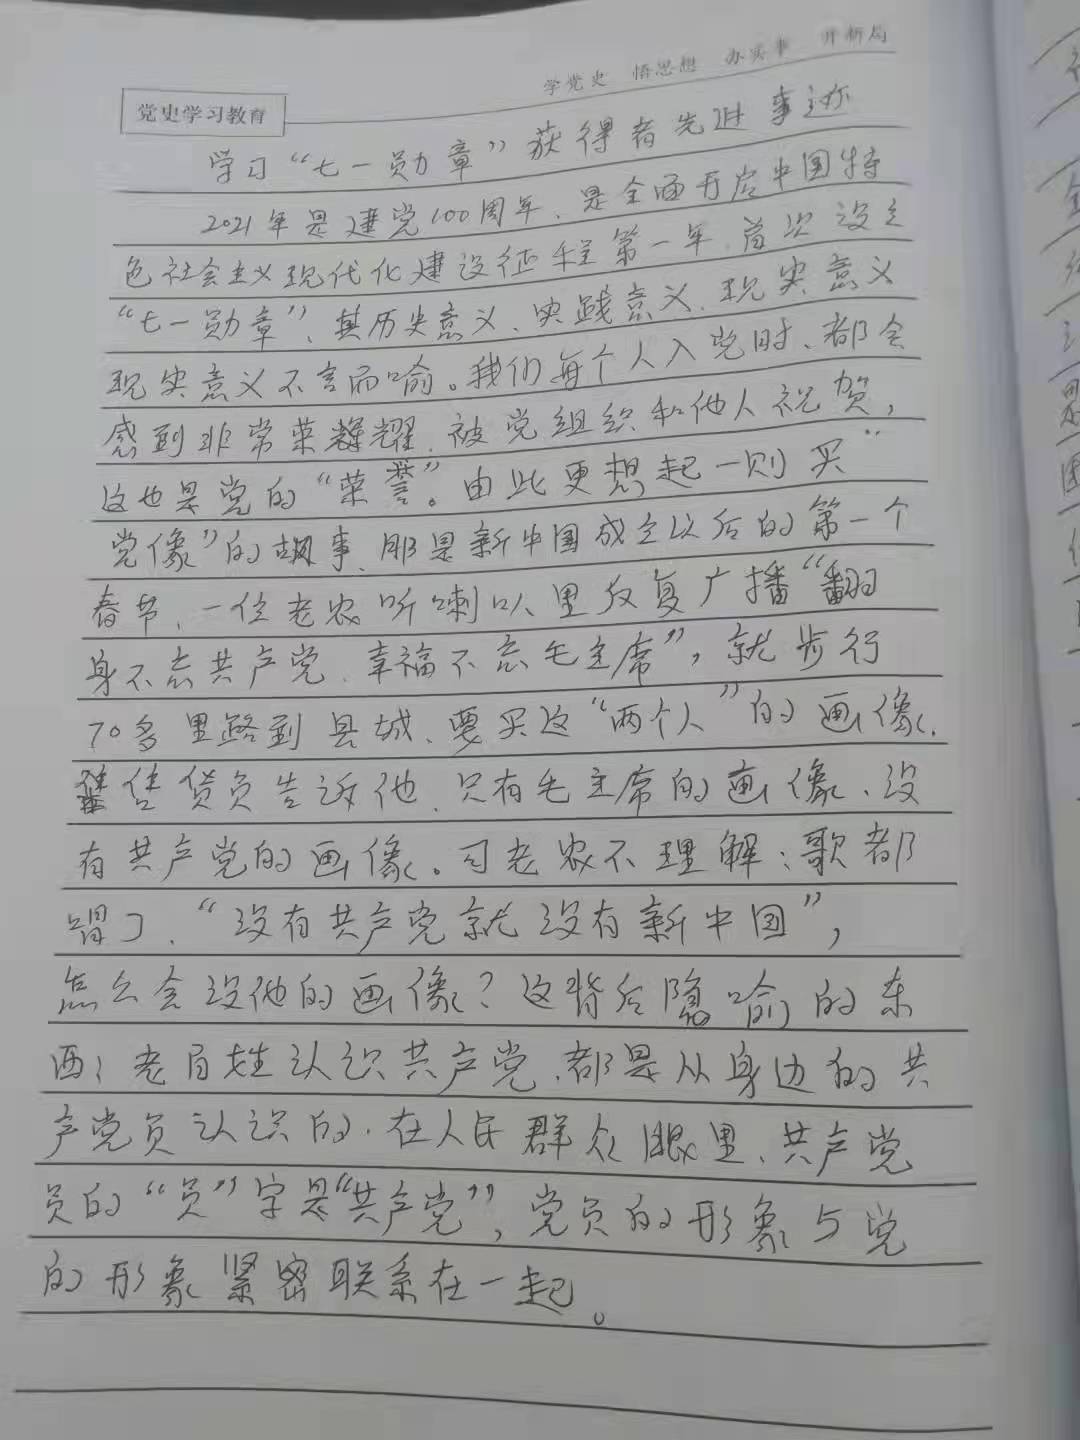 学党史 悟思想 办实事 开新局
党史学习教育
学习“七一勋章”获得者先进事迹
2021年是建党100周年、是全面开启中国特
色社会主义现代化建设征程第一年,首次设立
“七一勋章”、其历史意义、实践意义、现实意义
现实意义不言而喻。我们每个人入党时、都会
感到非常荣耀,被党组织和他人祝贺,
这也是党的“荣誉”。由此更想起一则买“
党像”的故事、那是新中国成立以后的第一个
春节、一位老农听喇叭里反复广播“翻
身不忘共产党、幸福不忘毛主席”,就步行
70多里路到县城、要买这“两个人”的画像.
售货员告诉他、只有毛主席的画像、没
有共产党的画像。可老农不理解:歌都
唱了、“没有共产党就没有新中国”,
怎么会没他的画像?这背后隐喻的东
西;老百姓认识共产党、都是从身边的共
产党员认识的、在人民群众眼里、共产党
员的“员”字是“共产党”,党员的形象与党
的形象紧密联系在一起。